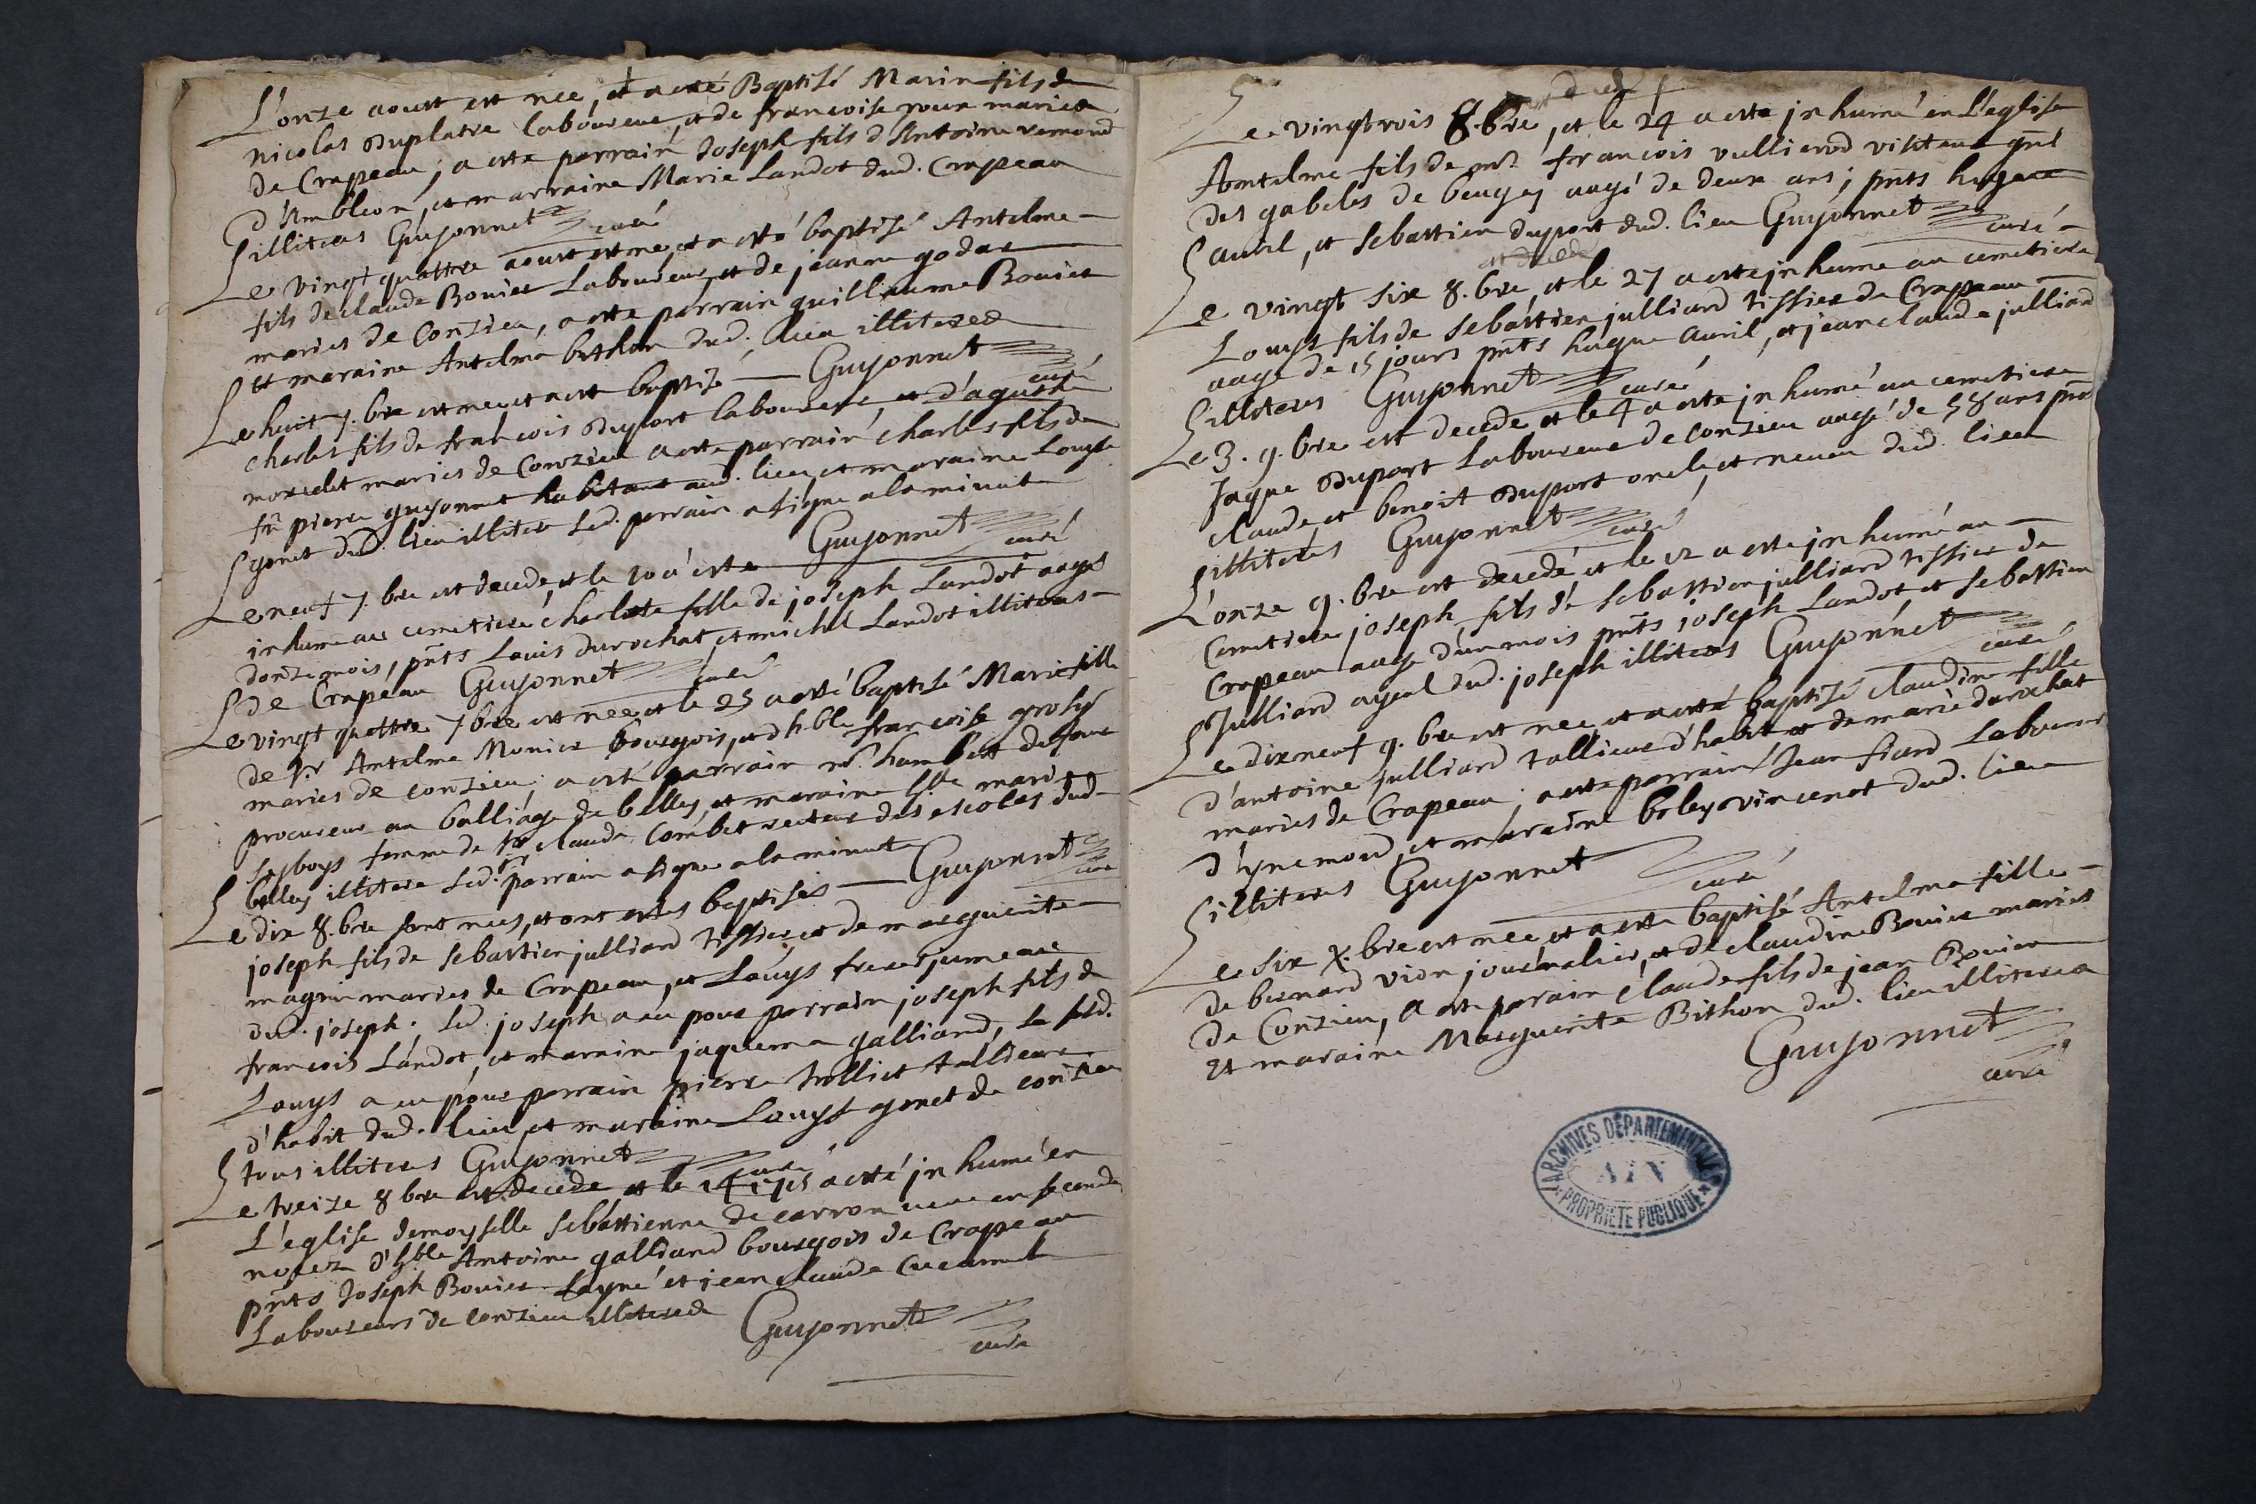 L'onze aoust est nee, et a esté Baptisé Marin fils de
nicolas Duplatre laboureur, et de francoise roux maries
de Crapeau; a este parrain Joseph fils d'Antoine remond
d'Ambleon, et marraine Marie Landot dud. Crapeau
illiteres Guyonnet curé
Le vingt quattre aoust est ne, et a esté baptisé Antelme
fils de claude Bouier Laboureur, et de jeanne godar
maries de Conzieu, a este parrain guillaume Bouier
et maraine Antelma bithon dud. lieu illiteres
Guyonnet curé
Le huit 7.bre est nee et a est baptisé
charles fils de francois Duport laboureur, et d'
maries de Conzieu a este parrain charles fils de
fû pierre guyonnet habitant aud. lieu, et maraine Louyse
gonet dud. lieu illitere led. parrain a signe a la minute
Guyonnet curé
Le neuf 7.bre est decede, et le 10 a este
inhume au cemetiere charlote fille de joseph Landot aagé
donze mois, pnts Louis durochat, et michel Landot illiteres
de Crapeau Guyonnet curé
Le vingt quattre 7bre est nee et le 25 a esté baptisé Marie fille
de Sr Antelme Monier bourgois, et d'h.ble francoise
maries de conzieu; a esté parrain mr. humbert
procureur au balliage de belley, et maraine
femme de Sr claude Combet recteur des escoles dud.
belley illitere led. Sr parrain a signe a la minute
Guyonnet curé
Le dix 8.bre sont nees, et ont estes baptises
joseph fils de sebastien julliard tissier et de marguerite
magnin maries de Crapeau, et Louys freres jumeaux
dud. joseph. Led. joseph a eu pour parrain joseph fils de
francois Landot, et maraine jaquema galliand, Le sud.
Louys a eu pour parrain pierre trolliet tallieur
d'habit dud. lieu, et maraine Louyse gonet de conzieu
tous illiteres Guyonnet curé
Le treize 8bre est decede, et le 15 a esté jnhumé en
L'eglise demoyselle sebastienne de carron en seconde
nopces d'h.ble Antoine galliand bourgois de Crapeau
pnts Joseph Bouier Layné et jean claude Cucarmet
Laboureurs de conzieu illiteres Guyonnet
curé
est decede
Le vingtrois 8.bre, et le 24 a este jnhumé en L'eglise
Antelme fils de mr. francois vullierod visiteur gnl
des gabeles de beugey aagé de deux ans; pnts hugue
auril, et sebastien duport dud. lieu Guyonnet curé
est decede
Le vingt six 8.bre et le 27 a este jnhume au cemetiere
Louys fils de sebastien julliard tissier de Crapeau
aage de 15 jours pnts hugue auril, et jean claude julliard
illiteres Guyonnet curé
Le 3. 9.bre est decede et le 4 a este jnhumé au cemetiere
Jaque Duport Laboureur de conzieu aagé de 58 ans pnts
claude et benoit Duport oncle, et neueu dud. lieu
illiteres Guyonnet curé
L'onze 9.bre est decedé et le 12 a este jnhumé au
Cemetiere joseph fils de sebastien julliard tissier de
Crapeau aage d'un mois pnts joseph Landot et sebastien
Julliard ayeul dud. joseph illiteres Guyonnet curé
Le dixneuf 9.bre est nee, et a esté baptisé claudine fille
d'antoine julliard tallieur d'habit et de marie durochat
maries de Crapeau; a este parrain Jean fiard Laboureur
d'ynimond, et maraine vincenot dud. lieu
illiteres Guyonnet
curé
Le six X.bre est nee et a esté baptisé Antelma fille
de bernard vion journalier, et de claudine Bouier maries
de Conzieu, a este parain claude fils de jean Bouier
et maraine Marguerite Bithon dud. lieu illiteres
Guyonnet
curé
ARCHIVES DÉPARTEMENTALES
AIN
PROPRIÉTÉ PUBLIQUE